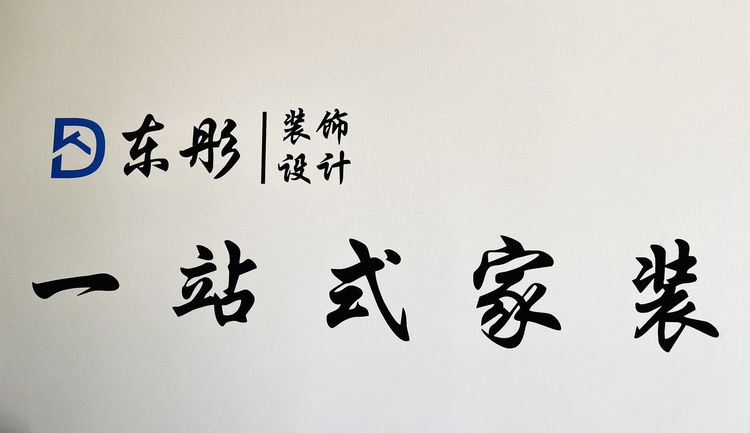 东彤 装饰
设计
一站式家装